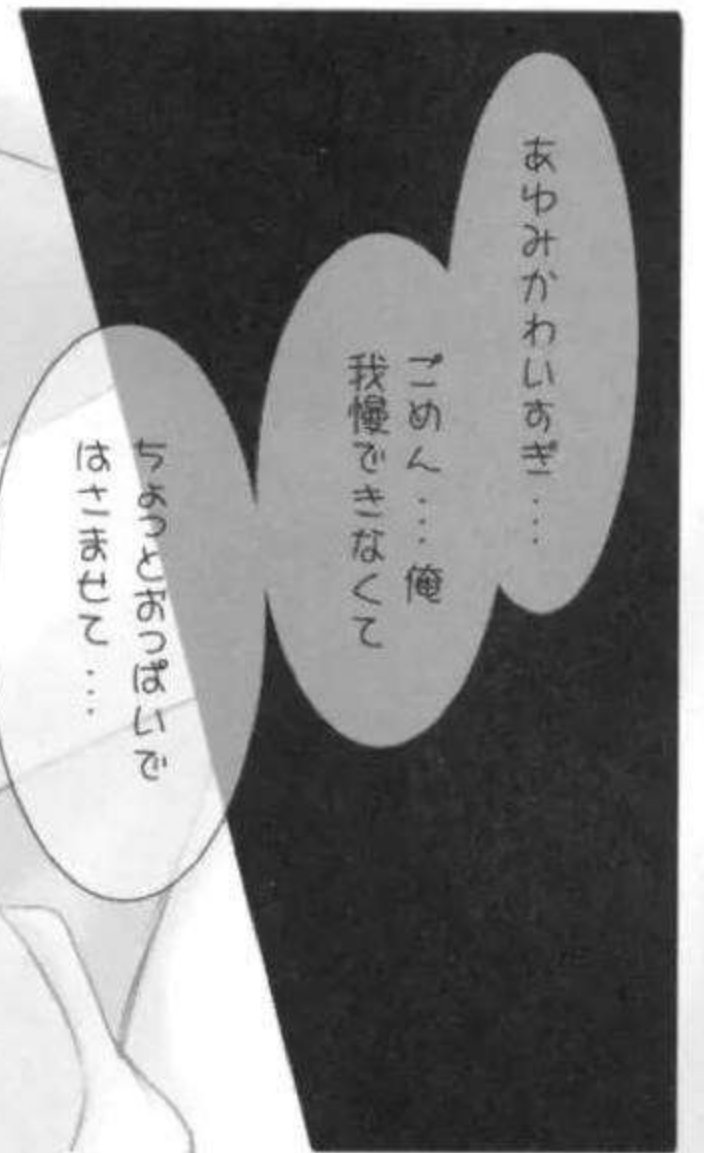 あゆみかわいすぎ...
ごめん...俺
我慢できなくて
ちょっとおっぱいで
はさませて...